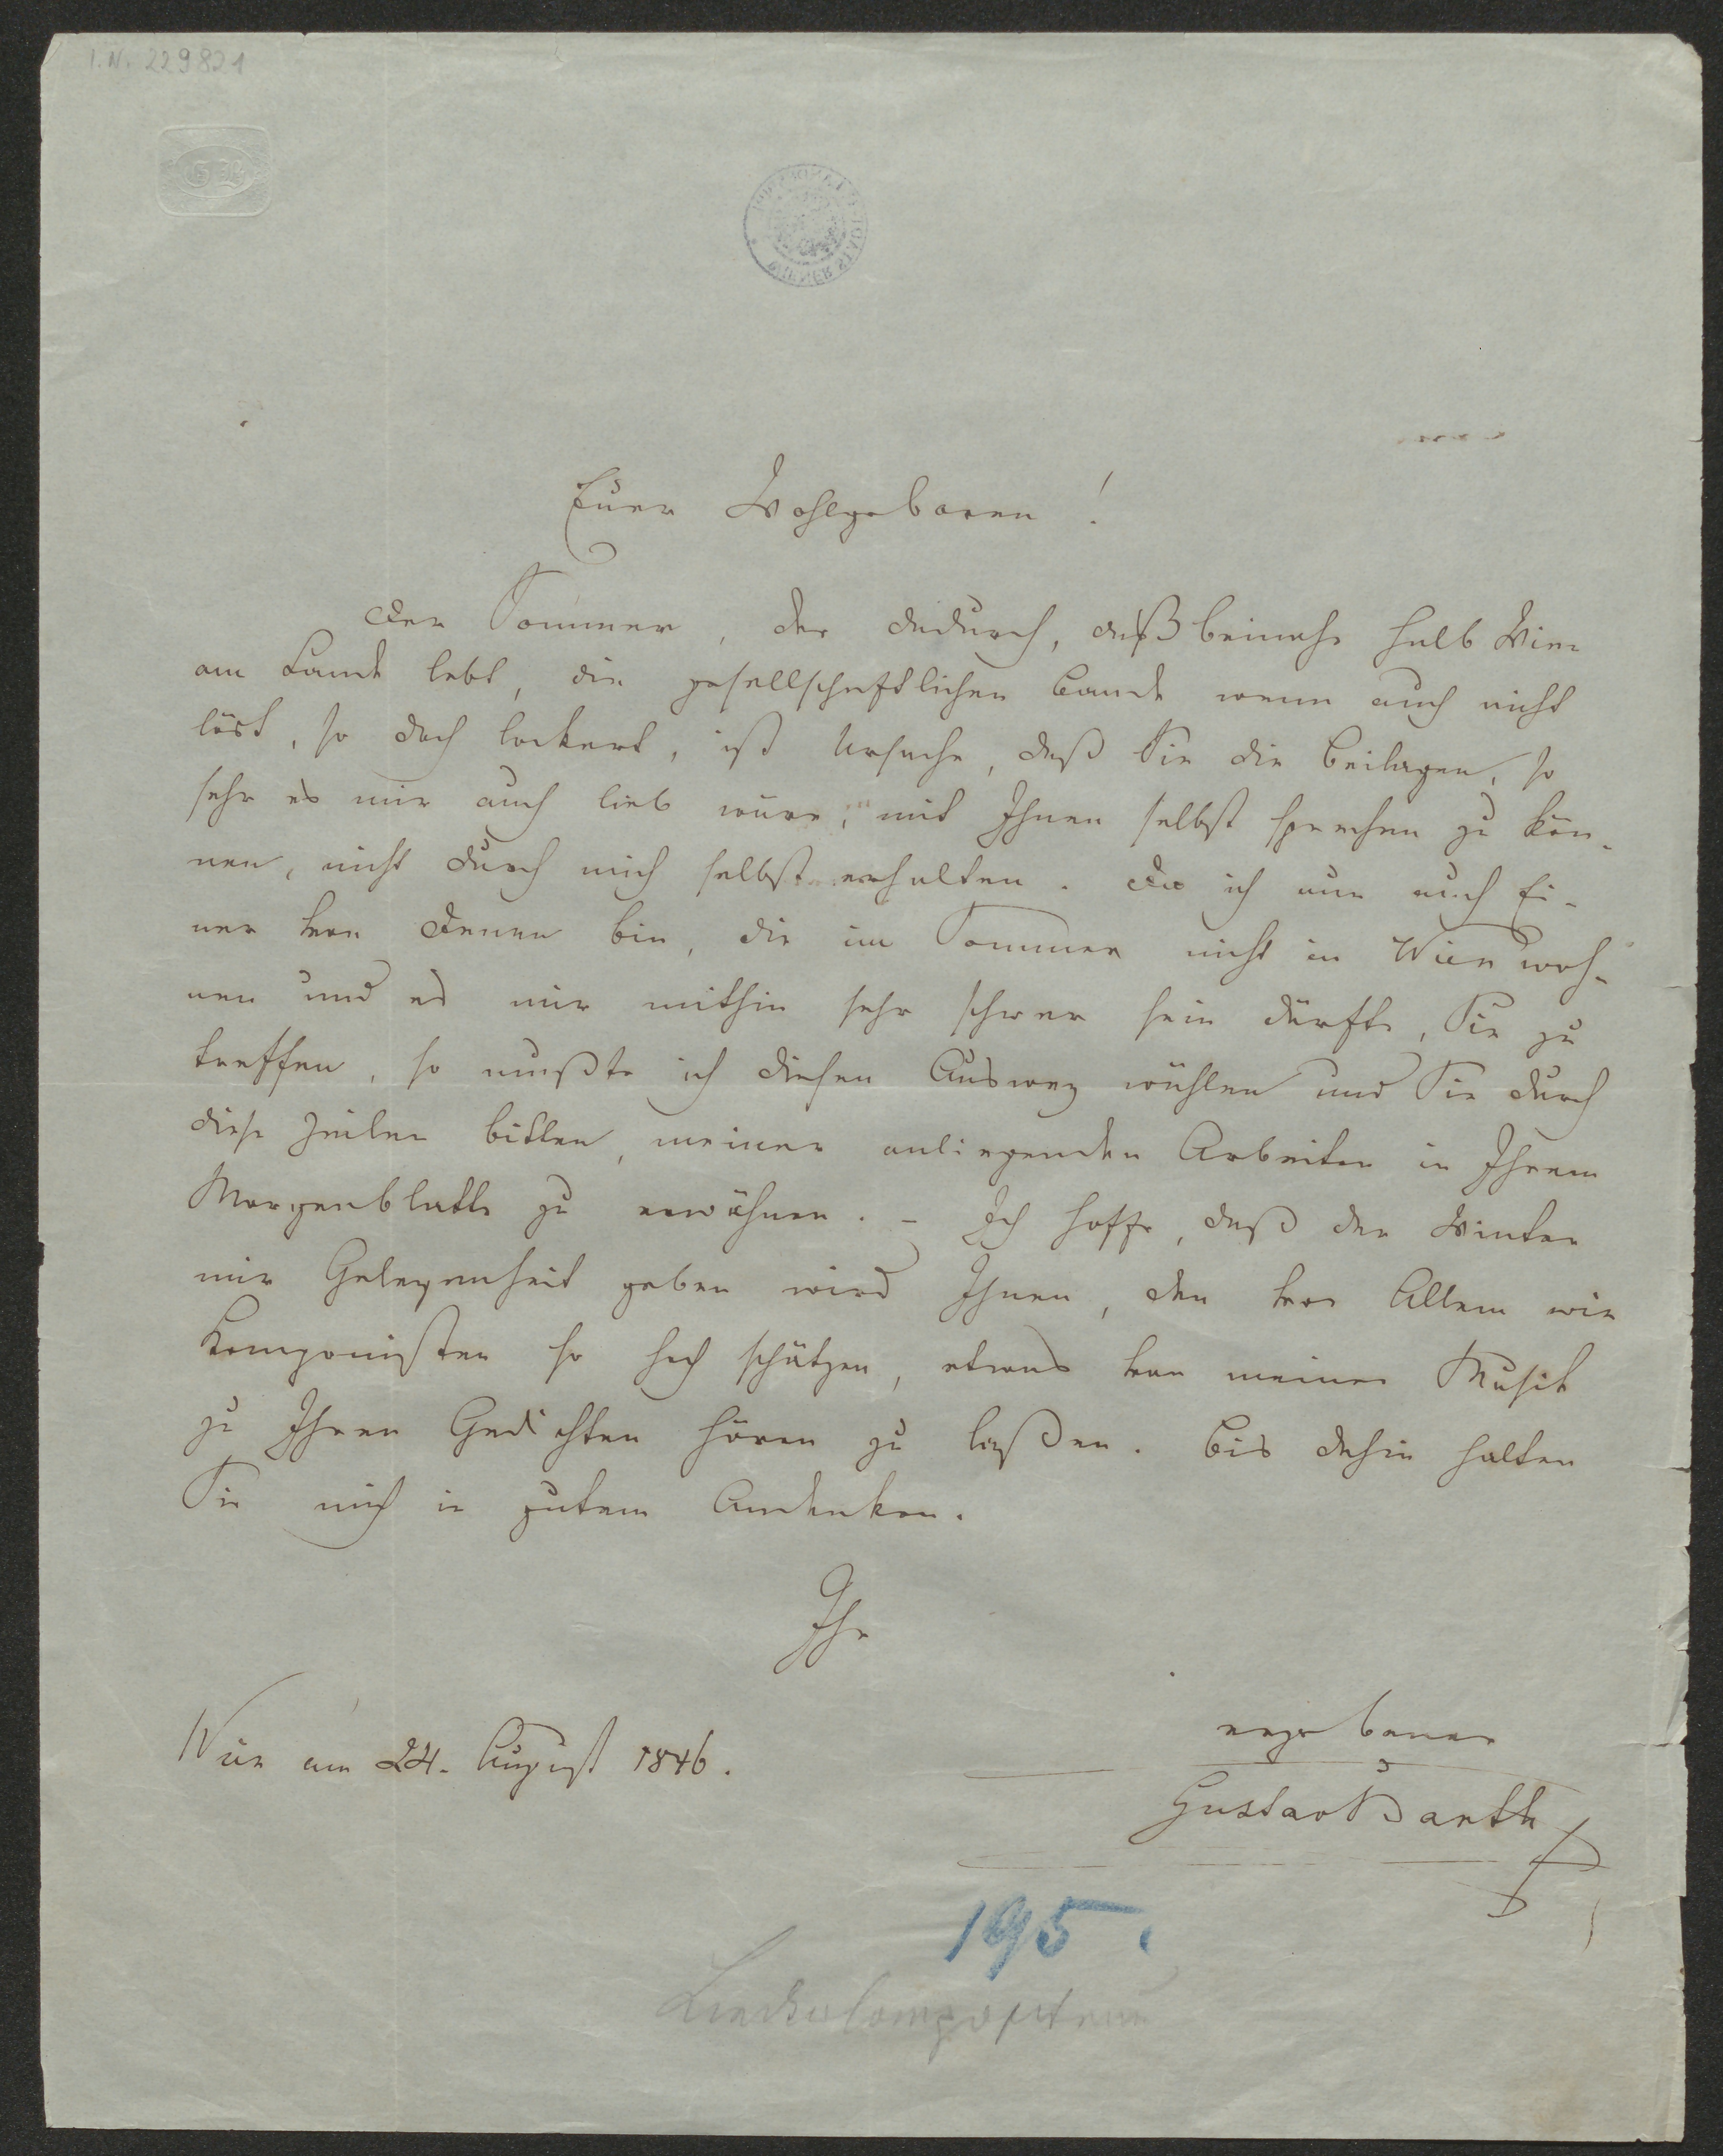 I.N. 229821
GB
Euer Wohlgeboren!
Der Sommer, der dadurch, daß beinahe halb Wien
am Lande lebt, die gesellschaftlichen Bande wenn auch nicht
löst, so doch lockert, ist Ursache, daß Sie die Beilagen, so
sehr es mir auch lieb wäre, mit Ihnen selbst sprechen zu kön-
nen, nicht durch mich selbst erhalten. Da ich nun auch Ei-
ner von Denen bin, die im Sommer nicht in Wien woh-
nen und es mir mithin sehr schwer sein dürfte, Sie zu
treffen, so mußte ich diesen Ausweg wählen und Sie durch
diese Zeilen bitten, meiner anliegenden Arbeiten in Ihrem
Morgenblatte zu erwähnen. – Ich hoffe, daß der Winter
mir Gelegenheit geben wird Ihnen, den vor Allem wir
Komponisten so hoch schätzen, etwas von meiner Musik
zu Ihren Gedichten hören zu laßen. Bis dahin halten
Sie mich in gutem Andenken.
Ihr
Wien am 24. August 1846.
ergebener
Gustav Barth
195.